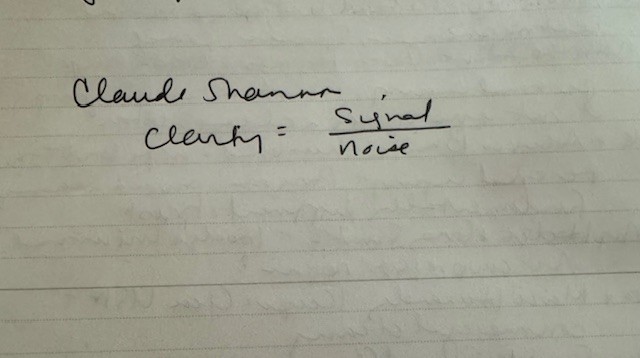 Claude Shannon
Clarity = Signal
noise